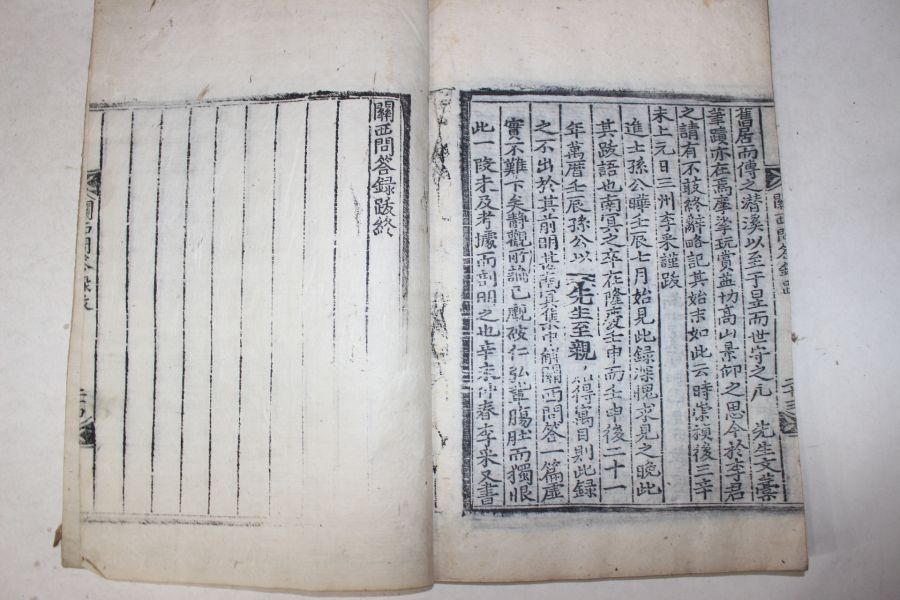 舊居而傳之潜溪以至于是而世守之凡　先生文藁
筆蹟亦在焉摩挲玩賞益切高山景仰之思今於李君
之請有不敢終辭略記其始末如此云時崇禎後三辛
未上元日三州李采謹跋
進士孫公㬇壬辰七月始見此録深愧求見之晩此
其跋語也南冥之卒在隆慶壬申而壬申後二十一
年萬曆壬辰孫公以　先生至親　得寓目則此録
之不出於其前明甚南冥集中解關西問答一篇虛
實不難下矣靜觀所論已覷破仁弘輩膓肚而獨恨
此一段未及考據而剖明之也辛未仲春李采又書
關西問答錄跋
二十三
關西問答録跋終
關西問答錄跋
二十四